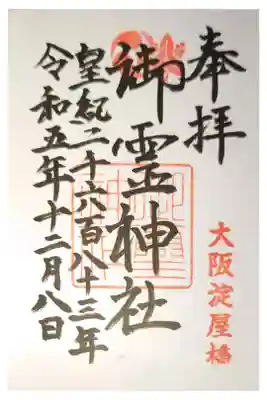 奉拝
大阪淀屋橋
御霊神社
皇紀二千六百八十三年
令和五年十二月八日